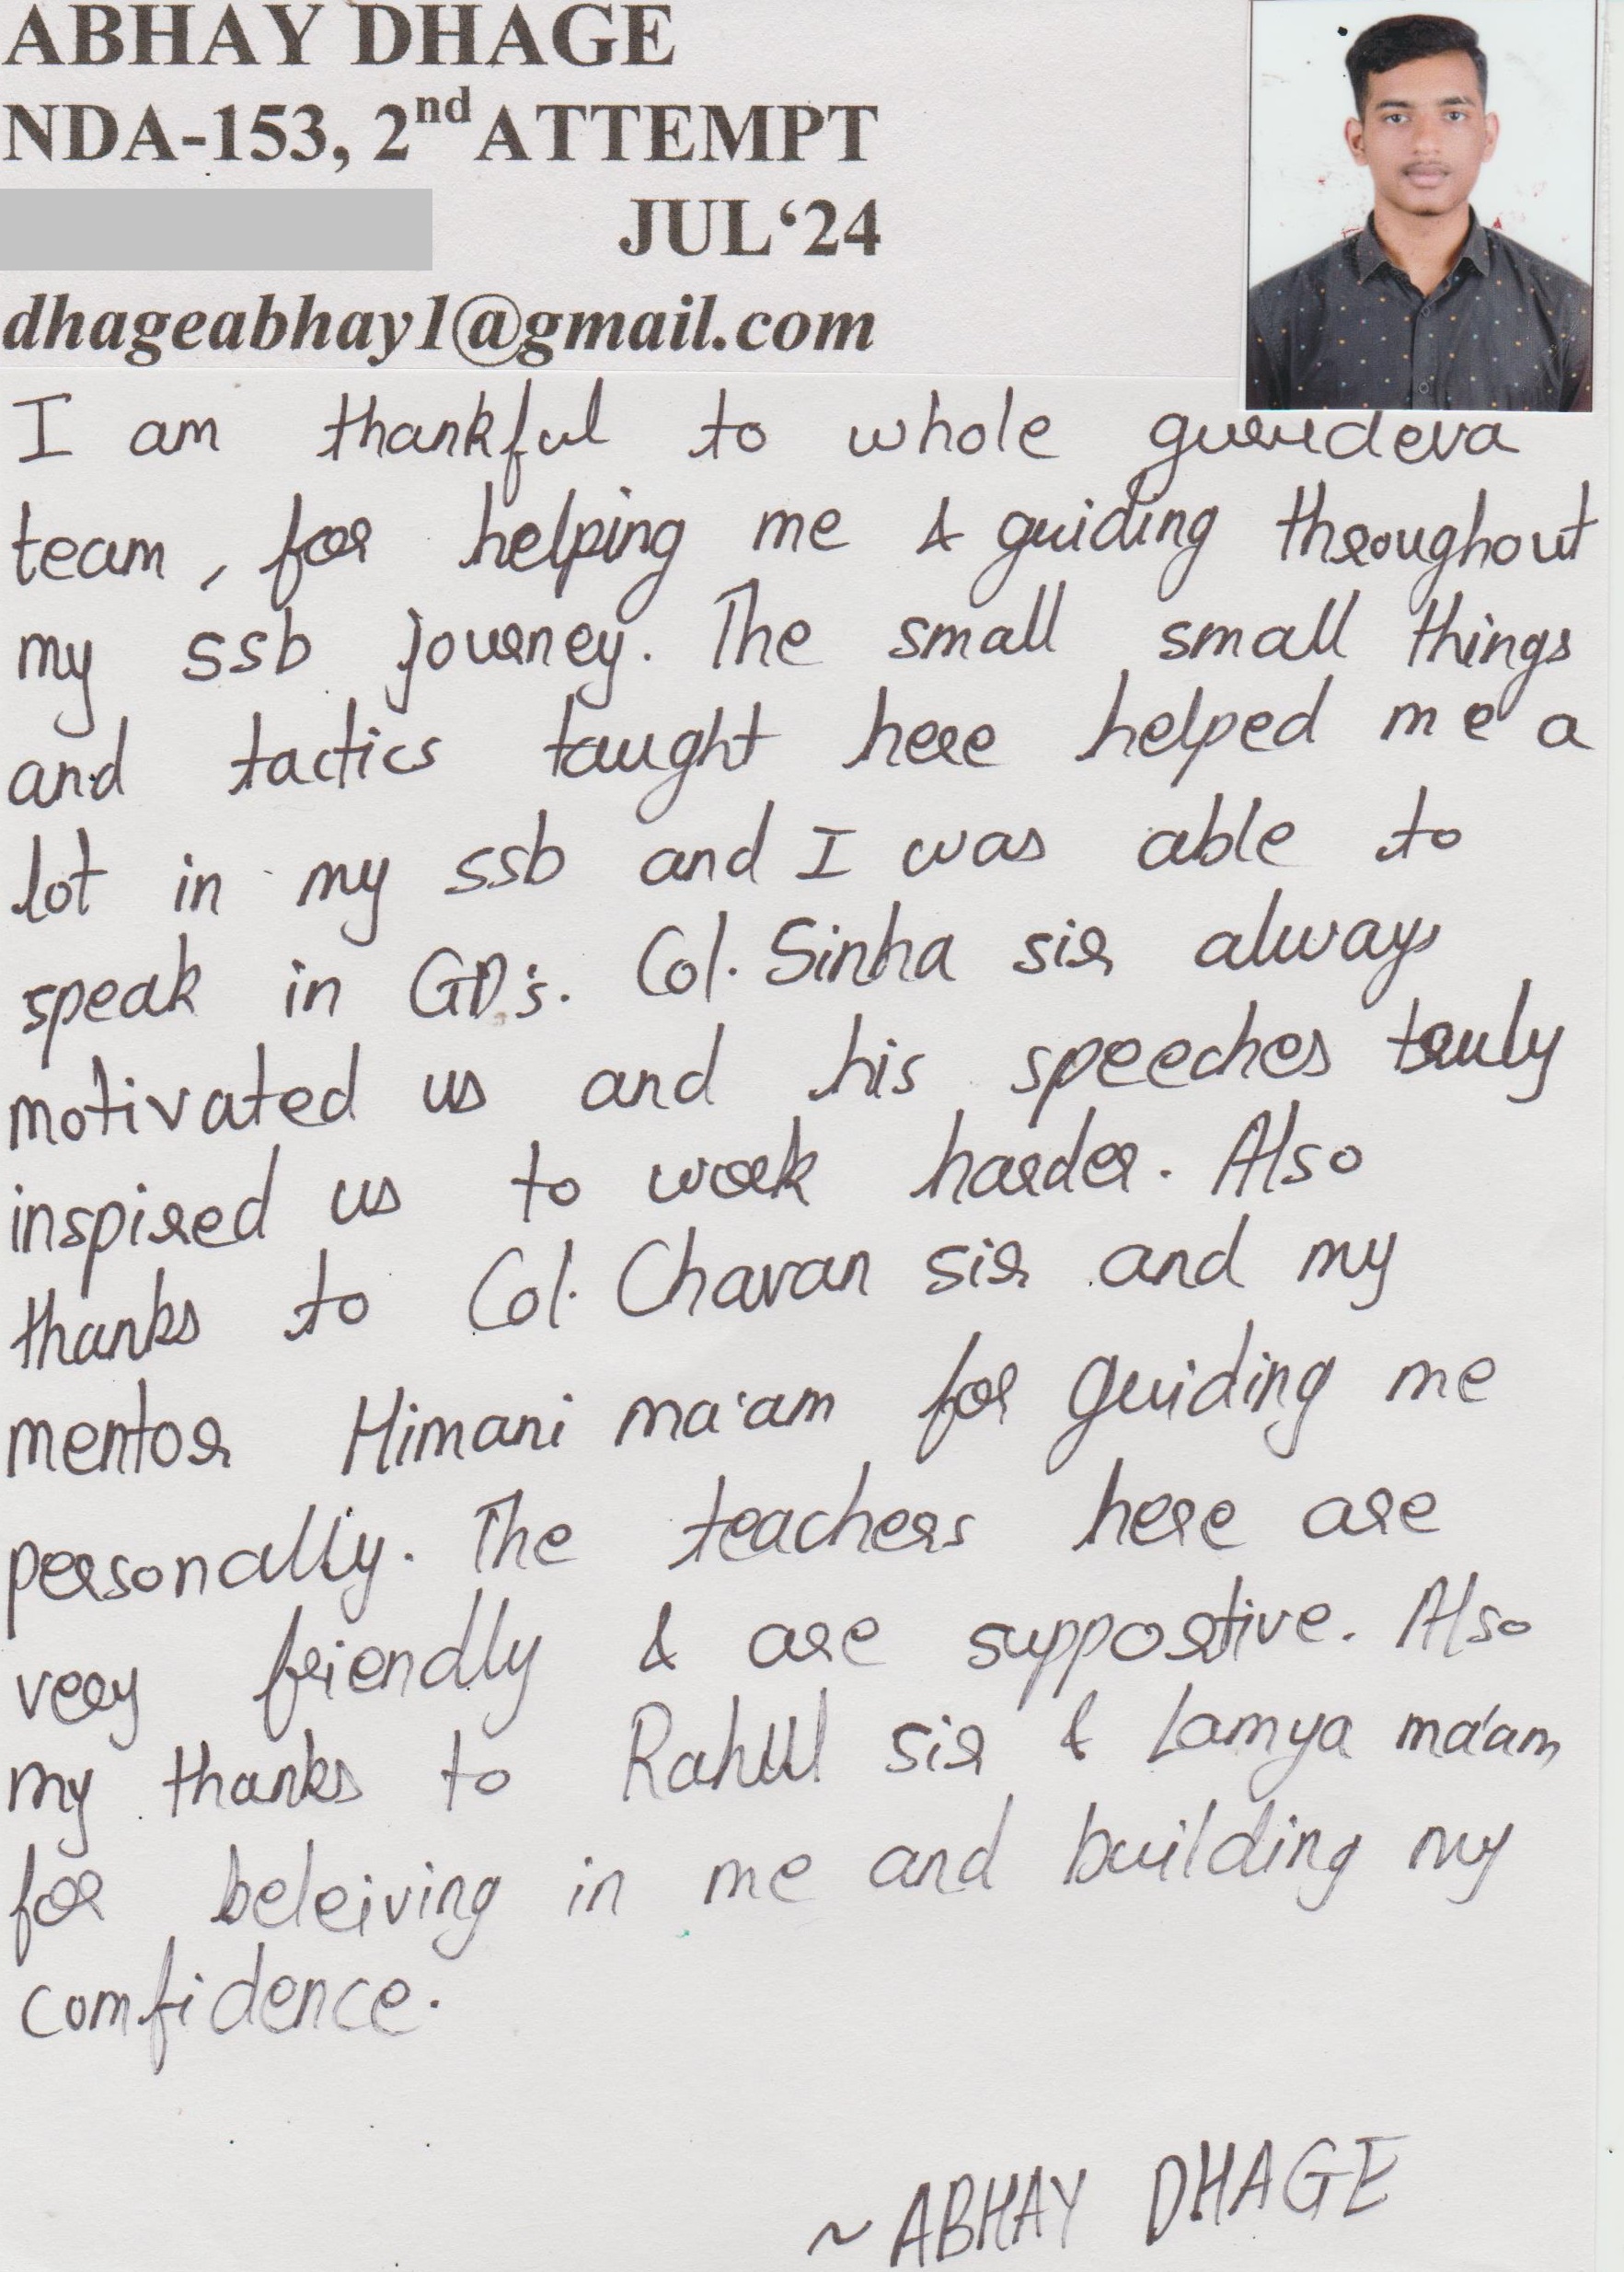 ABHAY DHAGE
NDA-153, 2nd ATTEMPT
JUL‘24
dhageabhay1@gmail.com
I am thankful to whole gurudeva
team, for helping me & guiding throughout
my ssb journey. The small small things
and tactics taught here helped me a
lot in my ssb and I was able to
speak in GD's. Col. Sinha sir always
motivated us and his speeches truly
inspired us to work harder. Also
thanks to Col. Chavan sir and my
mentor Himani ma'am for guiding me
personally. The teachers here are
very friendly & are supportive. Also
my thanks to Rahul sir & Lamya ma'am
for beleiving in me and building my
comfidence.
~ ABHAY DHAGE